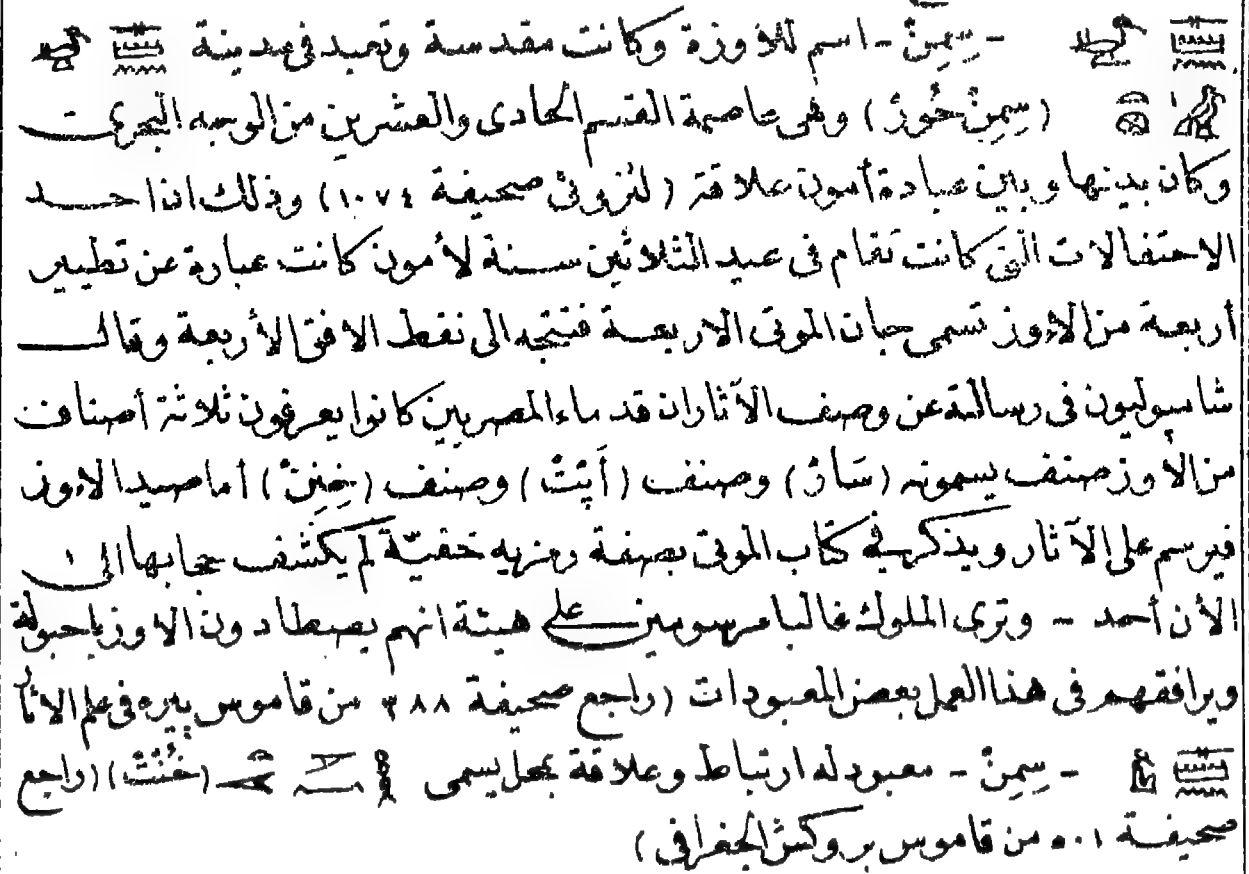 - سِمِنْ - اسم للأوزة وكانت مقدسة وتعبد فى مدينة
(سِمِنْ حُورْ) وهى عاصمة القسم الحادى والعشرين من الوجه البحرى
وكان بينها وبين عبادة أمون علاقة (لنزونى صحيفة ١٠٧٤) وذلك ان احد
الاحتفالات التى كانت تقام فى عيد الثلاثين سنة لأمون كانت عبارة عن تطيير
أربعة من الاوز تسمى جبان الموتى الاربعة فتتجه الى نقط الافق الأربعة وقال
شامبوليون فى رسالته عن وصف الآثار ان قدماء المصريين كانوا يعرفون ثلاثة أصناف
من الأوز صنف يسمونه (سَارْ) وصنف (أَپْتْ) وصنف (خِنِنْ) أما صيد الاوز
فيرسم على الآثار ويذكر فى كتاب الموتى بصفة رمزيه خفيّة لم يكشف حجابها الى
الأن أحمد - وترى الملوك غالبا مرسومين على هيئة انهم يصطادون الاوز باحبولة
ويرافقهم فى هذا العمل بعض المعبودات (راجع صحيفة ٣٨٨ من قاموس پيره فى علم الاثار
- سِمِنْ - معبود له ارتباط وعلاقة بمحل يسمى (خُنْتْ) (راجع
صحيفة ٥٠١ من قاموس بروكش الجغرافى)